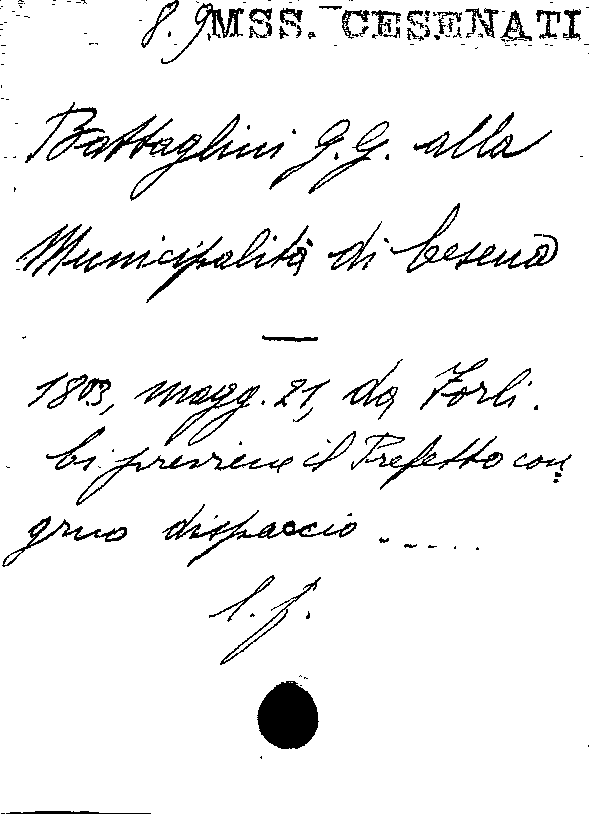 8. 9 MSS. CESENATI
Battaglini G. G. alla
Municipalità di Cesena
1803, magg. 21, da Forlì.
Ci previene il Prefetto con
gruo dispaccio .....
l. f.